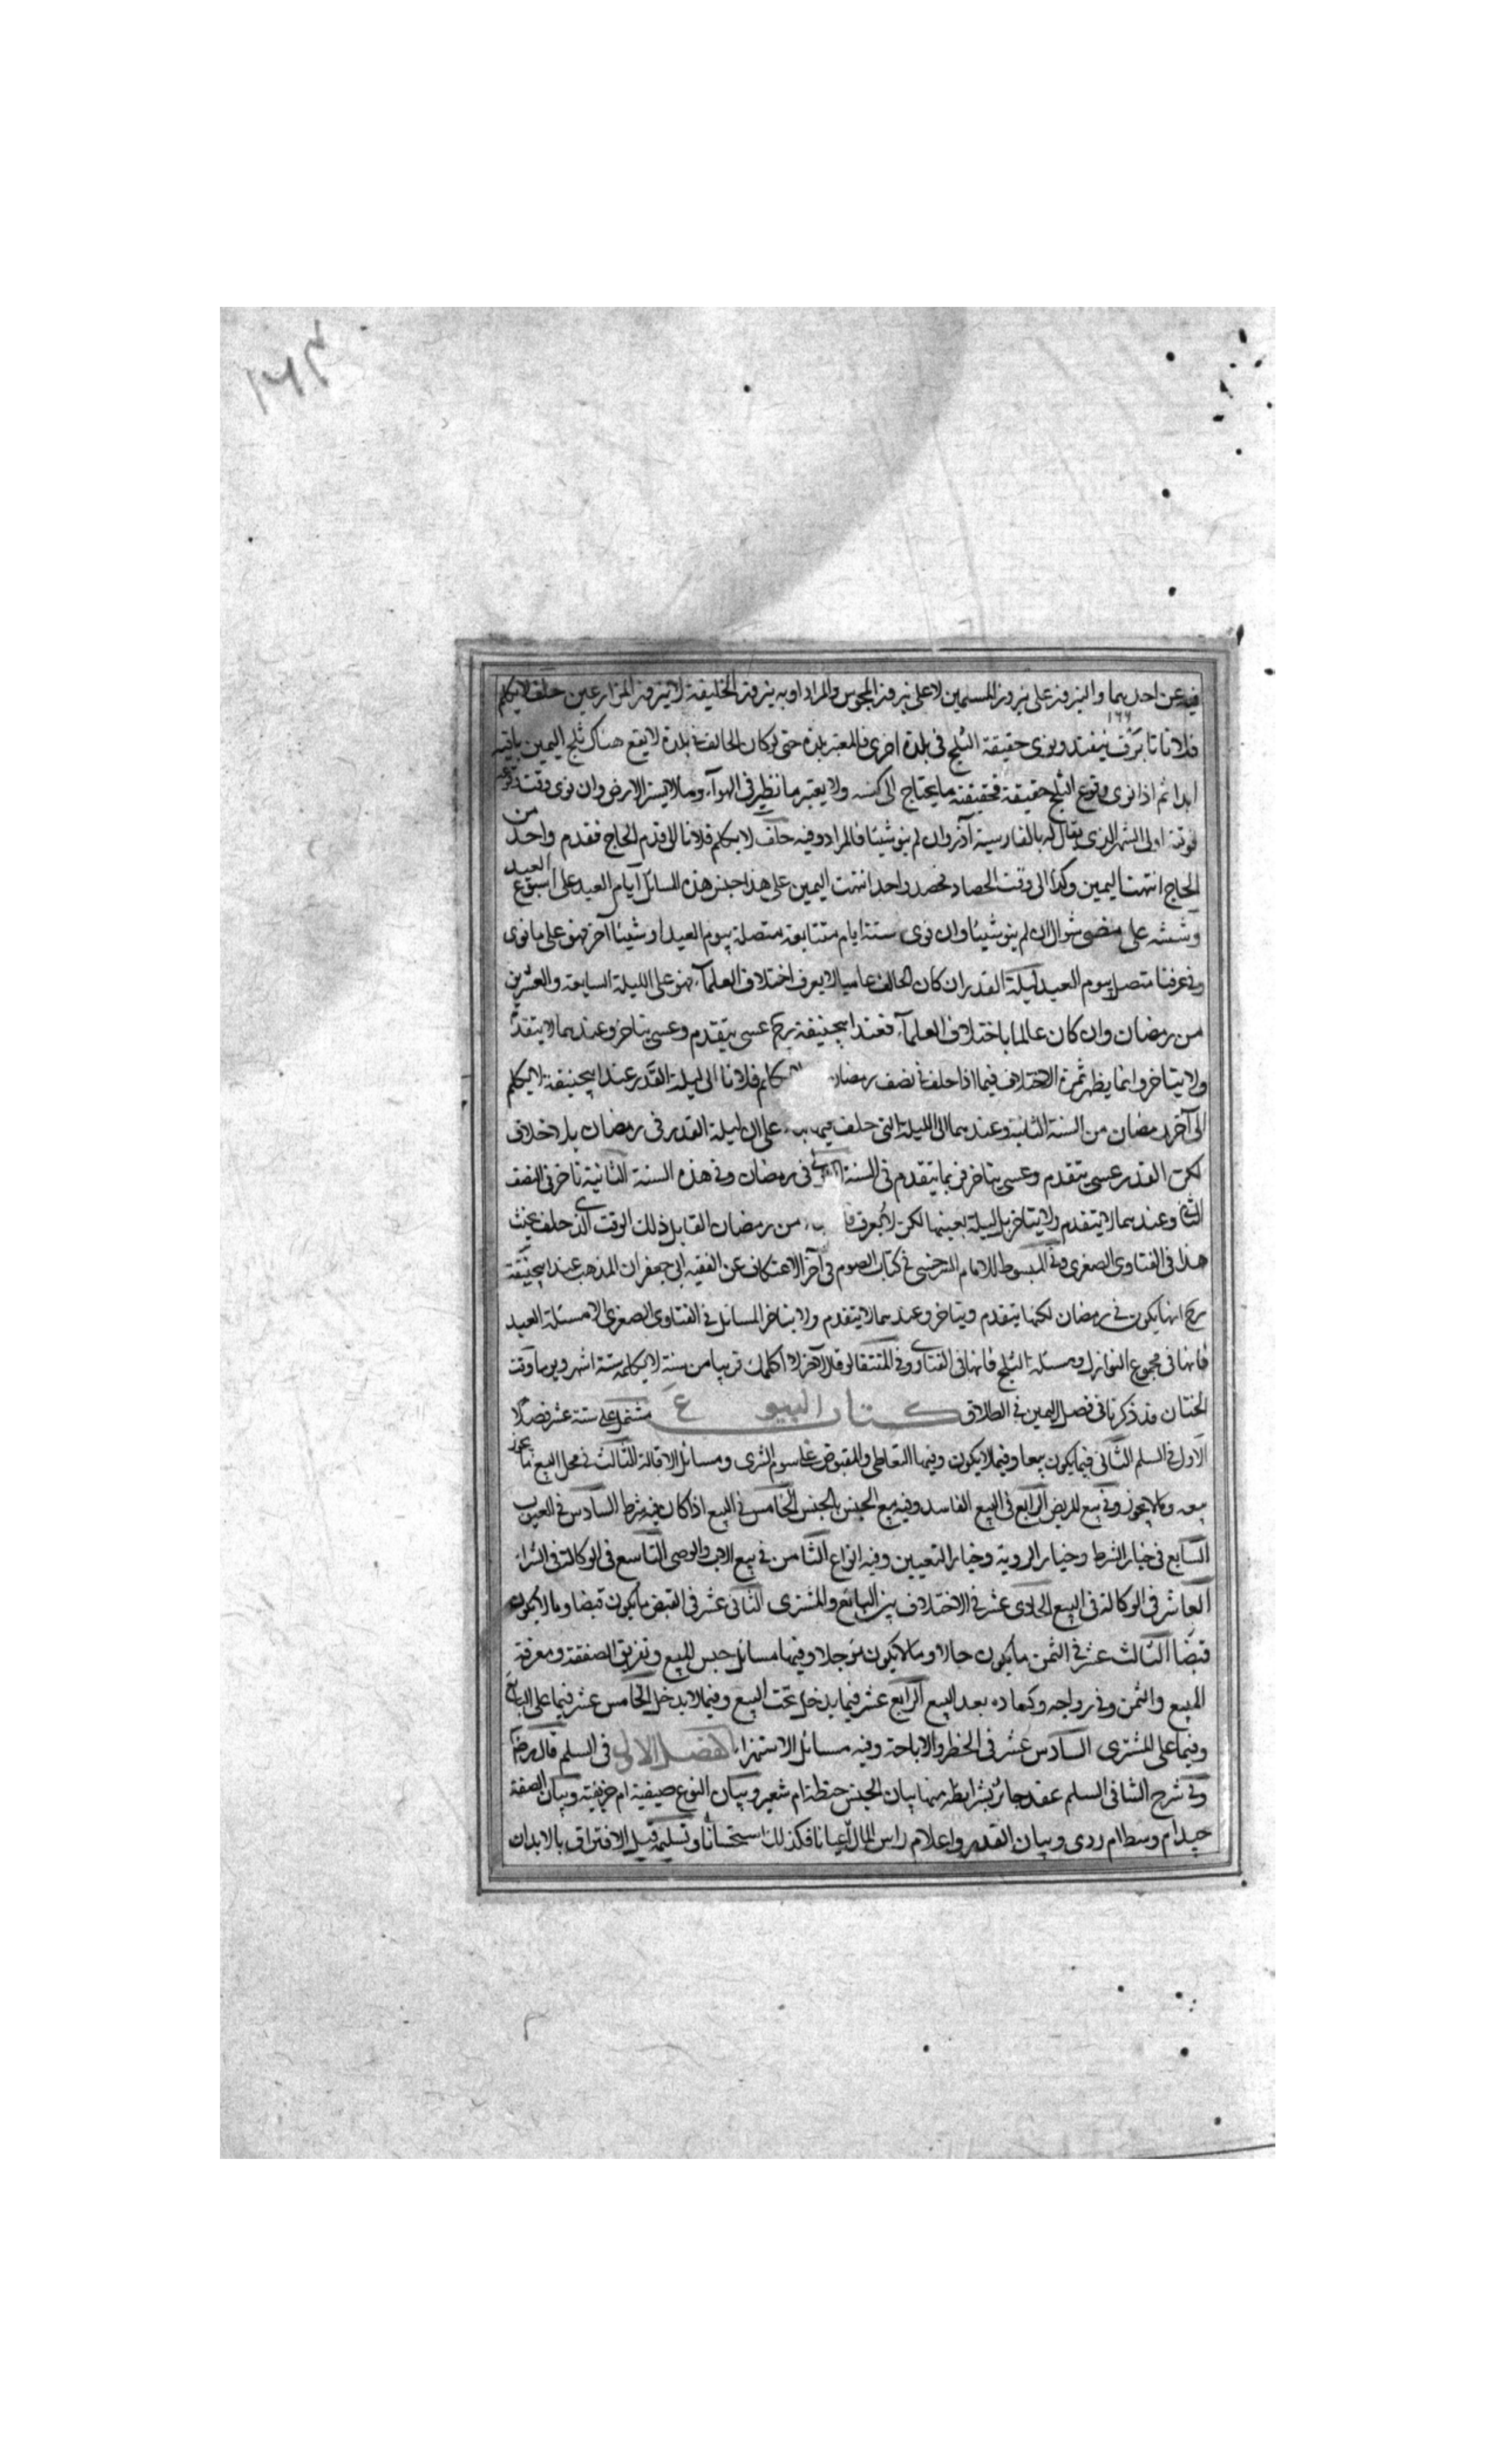 فيه عن احديهما والنيروز على نيروز المسلمين لا على نيروز المجوس والمراد به نيروز الخليفة لا نيروز المزارعين حلف لا يكلم
فلانا تا برف نيفتد ونوى حقيقة الثلج فى بلدة اخرى فالمعتبر بلده حتى لو كان الحالف فى بلدة لا يقع هناك ثلج اليمين باقية
ابدا ثم اذا نوى وقوع الثلج حقيقة فحقيقته ما يحتاج الى كنسه ولا يعتبر ما نظير فى الهوآء وما لا يستر الارض وان نوى وقت وقوعه
فوقته اول الشهر الذى يقال له بالفارسية آذر وان لم ينو شيئا فالمراد وفيه حلف لا يكلم فلانا الى قدم الحاج فقدم واحد من
الحاج انتهت اليمين وكذا الى وقت الحصاد فحصد واحد انتهت اليمين على هذا جنس هذه المسائل ايام العيد على اسبوع العيد
وششه على مضى شوال ان لم ينو شيئا وان نوى ستة ايام متتابعة متصلة بيوم العيد او شيئا آخر فهو على ما نوى
وفى عرفنا متصل بيوم العيد ليلة القدر ان كان الحالف عاميا لا يعرف اختلاف العلمآء فهو على الليلة السابعة والعشرين
من رمضان وان كان عالما باختلاف العلمآء فعند ابيحنيفة رح عسى يتقدم وعسى يتاخر وعندهما لا يتقدم
ولا يتاخر وانما يظهر ثمرة الاختلاف فيما اذا حلف فى نصف رمضان لا يكلم فلانا الى ليلة القدر عند ابيحنيفة لا يكلم
الى آخر رمضان من السنة الثانية وعندهما الى الليلة التى حلف فيها على ان ليلة القدر فى رمضان بلا خلاف
لكن القدر عسى يتقدم وعسى يتاخر فربما يتقدم فى السنة فى رمضان وفى هذه السنة الثانية تاخر فى النصف
الثانى وعندهما لا يتقدم ولا يتاخر بل ليلة بعينها لكن لا يعرف من رمضان القابل ذلك الوقت الذى حلف يحنث
هذا فى الفتاوى الصغرى وفى المبسوط للامام السرخسى فى كتاب الصوم فى آخر الاعتكاف عن الفقيه ابى جعفر ان المذهب عند ابيحنيفة
رح انها يكون فى رمضان لكنها يتقدم ويتاخر وعندهما لا يتقدم ولا يتاخر المسائل فى الفتاوى الصغرى الا مسئلة العيد
فانها فى مجموع النوازل ومسئلة الثلج فانها فى الفتاوى وفى المنتقى لو قال لآخر لا اكلمك قريبا من سنة لا يكلمه ستة اشهر ويوما وقت
الختان قد ذكرنا فى فصل اليمين فى الطلاق كتاب البيوع مشتمل على ستة عشر فصلا
الاول فى السلم الثانى فيما يكون بيعا وفيما لا يكون وفيها التعاطى والمقبوض على سوم الشرى ومسائل الاقالة الثالث فى محل البيع ما يجوز
بيعه وما لا يجوز وفى بيع المريض الرابع فى البيع الفاسد وفيه بيع الجنس بالجنس الخامس فى البيع اذا كان فيه شرط السادس فى العيوب
السابع فى خيار الشرط وخيار الروية وخيار التعيين وفيه انواع الثامن فى بيع الاب والوصى التاسع فى الوكالة فى الشراء
العاشر فى الوكالة فى البيع الحادى عشر فى الاختلاف بين البائع والمشترى الثانى عشر فى القبض ما يكون قبضا وما لا يكون
قبضا الثالث عشر فى الثمن ما يكون حالا وما لا يكون مؤجلا وفيها مسائل حبس المبيع وتفريق الصفقة ومعرفة
المبيع والثمن وفى رواجه وكساده بعد البيع الرابع عشر فيما يدخل تحت البيع وفيما لا يدخل الخامس عشر فيما على البائع
وفيما على المشترى السادس عشر فى الحظر والاباحة وفيه مسائل الاستبراء الفصل الاول فى السلم قال رض
وفى شرح الشافى السلم عقد جائز بشرايطه منها بيان الجنس حنطة ام شعير وبيان النوع صيفية ام خريفية وبيان الصفة
جيد ام وسط ام ردى وبيان القدر واعلام راس المال اعيانا فكذلك استحسانا وتسليمه قبل الافتراق بالابدان